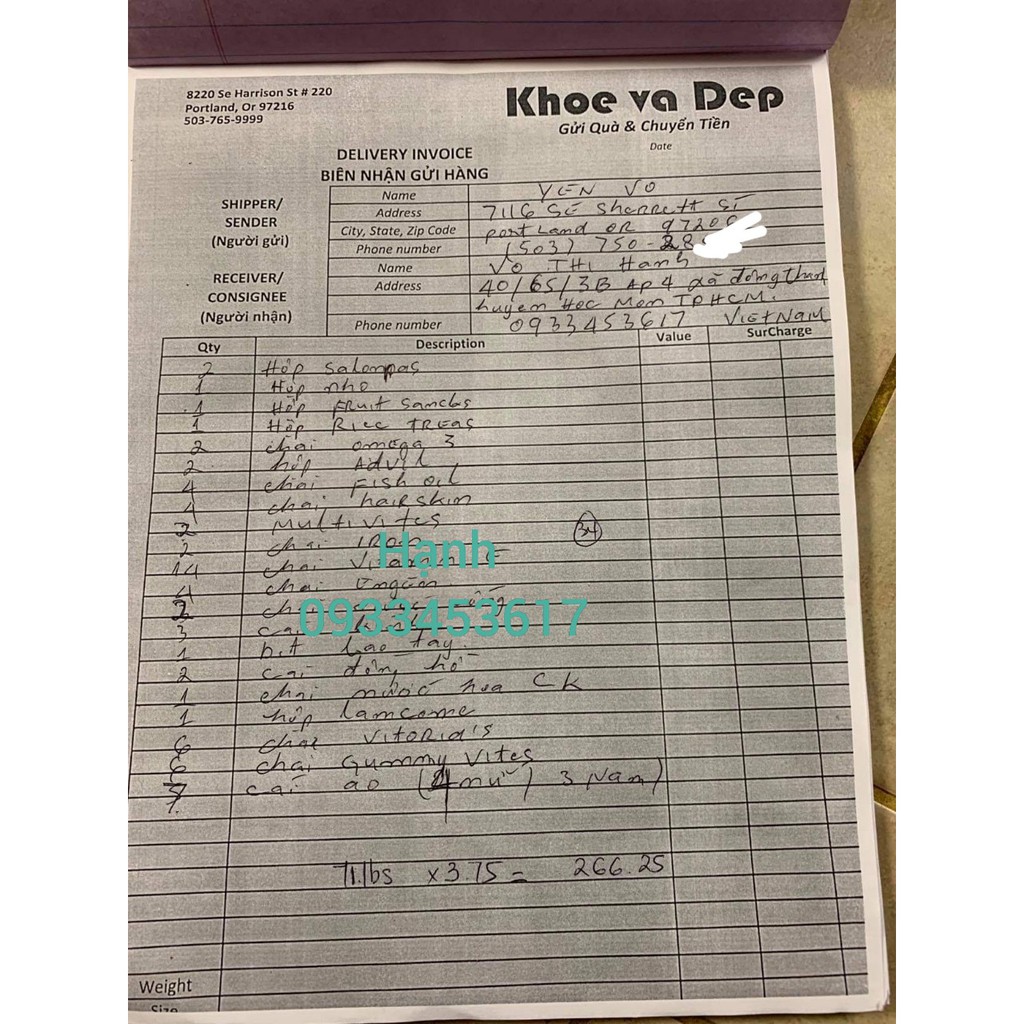 8220 Se Harrison St # 220
Portland, Or 97216
503-765-9999
Khoe va Dep
Gửi Quà & Chuyển Tiền
Date
DELIVERY INVOICE
BIÊN NHẬN GỬI HÀNG
SHIPPER/
SENDER
(Người gửi)
Name YEN VO
Address 7116 SE Sherrett ST
City, State, Zip Code portLand OR 9720
Phone number (503) 750-28
RECEIVER/
CONSIGNEE
(Người nhận)
Name VO THI Hanh
Address 40/65/3B AP 4 xã đông thanh
huyen Hoc Mon TPHCM.
Phone number 0933453617 VIETNAM
Qty Description Value SurCharge
2 Hôp Salonpas
1 Hôp nho
1 Hôp FRuit
1 Hôp Rice TREAS
2 chai omega 3
2 hôp Advil
4 chai Fish oil
4 chai hairskin
2 Multivites
2 chai IRon
34
14 chai
4 chai
2
3 cai
1 bit bao tay.
2 cai đông hô
1 chai nước hoa CK
1 hôp Lamcome
6 chai Vitoria's
6 chai Gummy Vites
7 cai ao (4 nư 3 Nam)
71.lbs x 3.75 = 266.25
Hạnh
0933453617
Weight
Size